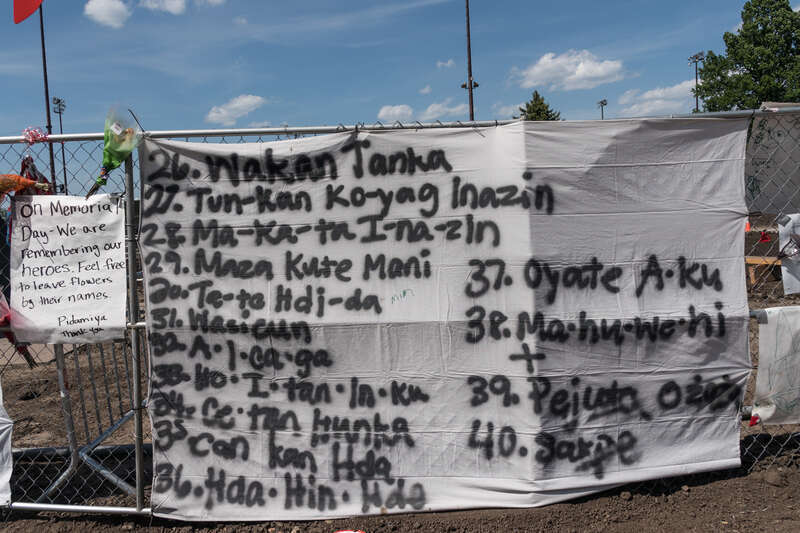 On Memorial
Day- We are
remembering our
heroes. Feel free
to leave flowers
by their names.
Pidamiya
Thank you
26. Wakan Tanka
27. Tun-kan Ko-yag Inazin
28. Ma-ka-ta I-na-zin
29. Maza Kute Mani
30. Ta-te Hdi-da
31. Wasicun
32. A-i-ca-ga
33. Ho-I-tan-In-ku
34. Ce-tan Hunka
35 Can kan Hda
36. Hda-Hin-Hde
37. Oyate A-ku
38. Ma-hu-we-hi
+
39. Pejuta
40. Sarpe